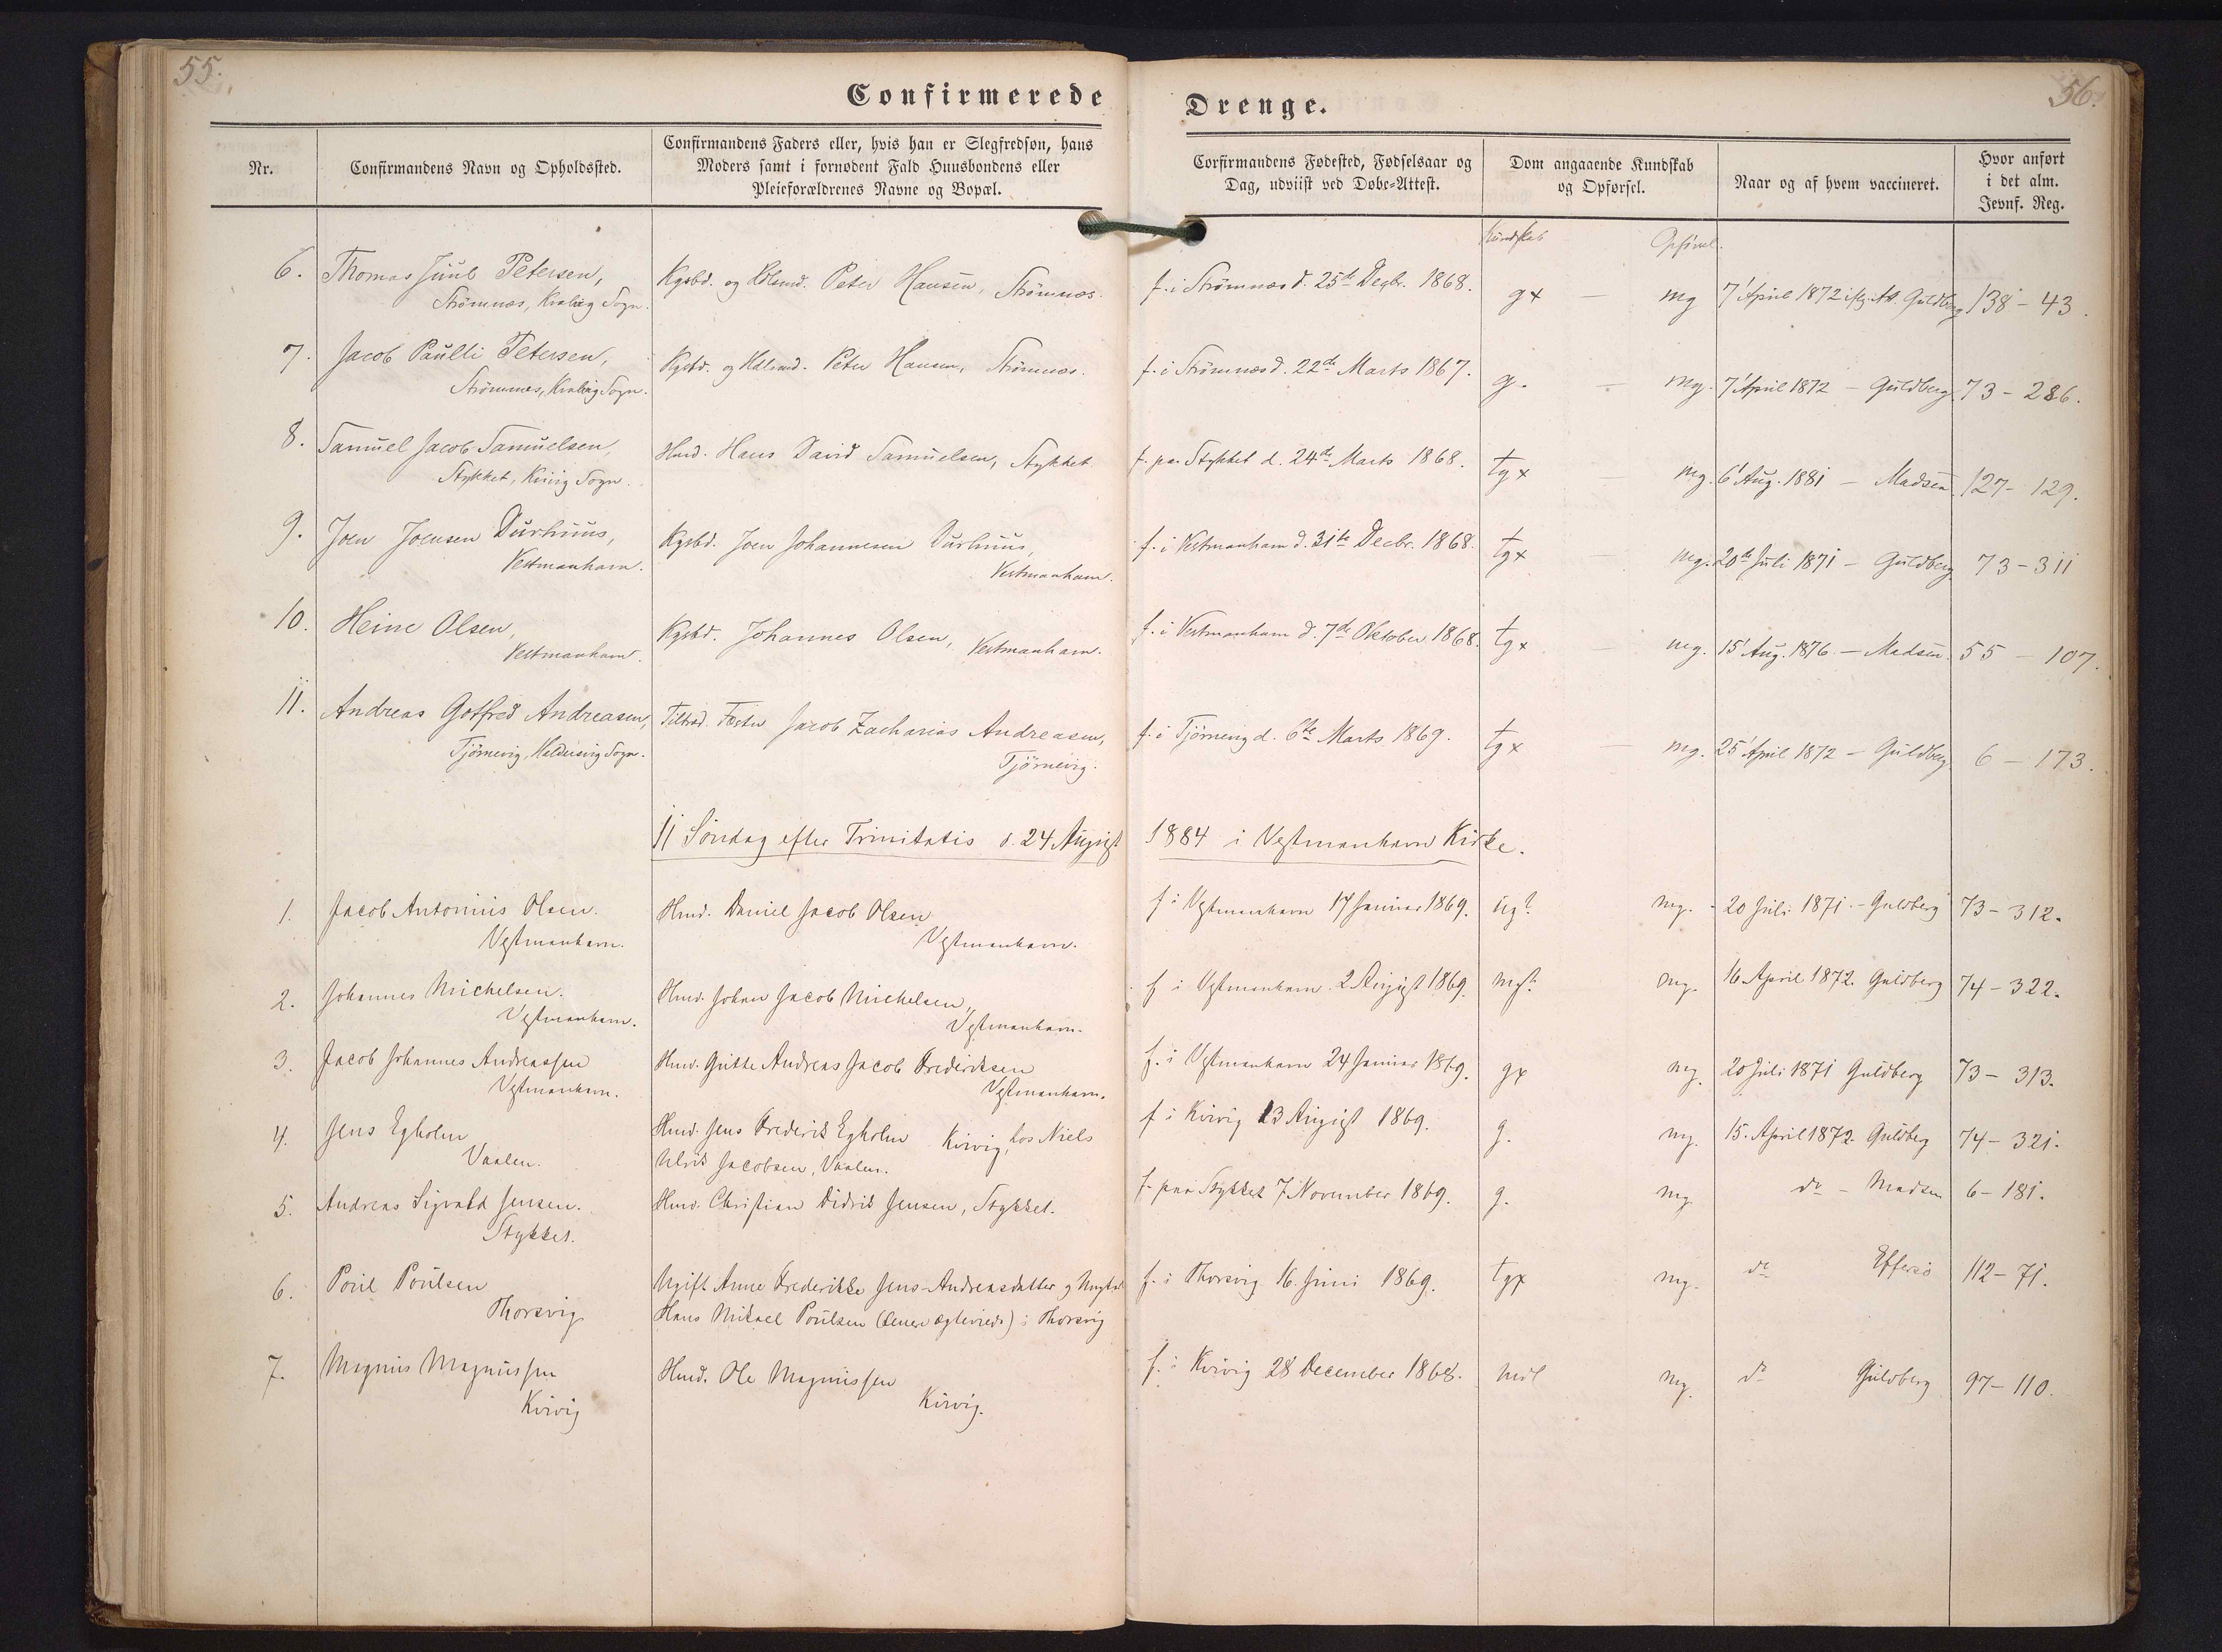 55.
56.
Confirmerede
Drenge.
Nr.
Confirmandens Navn og Opholdssted.
Confirmandens Faders eller, hvis han er Slegfredsøn, hans
Moders samt i fornødent Fald Huusbondens eller
Pleieforældrenes Navne og Bopæl.
Corfirmandens Fødested, Fødselsaar og
Dag, udviist ved Døbe-Attest.
Dom angaaende Kundskab
og Opførsel.
Naar og af hvem vaccineret.
Hvor anført
i det alm.
Jevnf. Reg.
Kundskab Opførsel.
6. Thomas Juul Petersen, Kgsbd. og Peter Hansen, Strömnæs. f. i Strömnæs d. 25de Decbr. 1868. gx — mg 7' April 1872 Guldberg 138 - 43.
Strömnæs, Sogn.
7. Jacob Paulli Petersen, Kgsbd. og Peter Hansen, Strömnæs. f. i Strömnæs d. 22de Marts 1867. g. — mg. 7' April 1872 — Guldberg 73 - 286.
Strömnæs, Sogn.
8. Samuel Jacob Samuelsen, Hmd. Hans David Samuelsen, Stykket. f. paa Stykket d. 24de Marts 1868. tgx — mg. 6' Aug. 1881 — Madsen. 127 - 129.
Stykket, Sogn.
9. Joen Joensen Durhuus, Kgsbd. Joen Johannesen Durhuus, f. i Vestmanhavn d. 31te Decbr. 1868. tgx — mg. 20de Juli 1871 — Guldberg 73 - 311
Vestmanhavn. Vestmanhavn.
10. Heine Olsen, Kgsbd. Johannes Olsen, Vestmanhavn. f. i Vestmanhavn d. 7de Oktober 1868. tgx — mg. 15' Aug. 1876 — Madsen. 55 — 107.
Vestmanhavn.
11. Andreas Gotfred Andreasen, Jacob Zacharias Andreasen, f. i Tjörnevig d. 6te Marts 1869. tgx — mg. 25' April 1872 — Guldberg. 6 — 173.
Tjörnevig, Haldersvig Sogn. Tjörnevig.
11 Söndag efter Trinitatis d. 24 August 1884 i Vestmanhavn Kirke.
1. Jacob Antonius Olsen. Hmd. Daniel Jacob Olsen f. i Vestmanhavn 17 Januar 1869. ug? mg. - 20 Juli 1871. - Guldberg 73 - 312.
Vestmanhavn. Vestmanhavn.
2. Johannes Michelsen. Hmd. Johan Jacob Michelsen, f. i Vestmanhavn 2 August 1869. mg? mg. 16 April 1872. Guldberg 74 - 322.
Vestmanhavn. Vestmanhavn.
3. Jacob Johannes Andreassen Hmd. Andreas Jacob Frederiksen f. i Vestmanhavn 24 Januar 1869. gx mg. 20 Juli 1871 Guldberg 73 - 313.
Vestmanhavn. Vestmanhavn.
4. Jens Egholm Hmd. Jens Frederik Egholm Kvivig, hos Niels f. i Kvivig 23 August 1869. g. mg. 15. April 1872. Guldberg 74 - 321.
Vaalen. Ulrik Jacobsen, Vaalen.
5. Andreas Sigvald Jensen. Hmd. Christian Didrik Jensen, Stykket. f. paa Stykket 7 November 1869. g. mg. do - Madsen 6 - 181.
Stykket.
6. Poul Poulsen Ugift Anne Frederikke Jens-Andreasdatter og f. i Thorsvig 16. Juni 1869. tgx mg. do Effersö 112 - 71.
Thorsvig Hans Mikael Poulsen (senere ægteviede) i Thorsvig
7. Magnus Magnussen Hmd. Ole Magnussen f. i Kvivig 28 December 1868. mdl mg. do Guldberg 97 - 110.
Kvivig Kvivig.